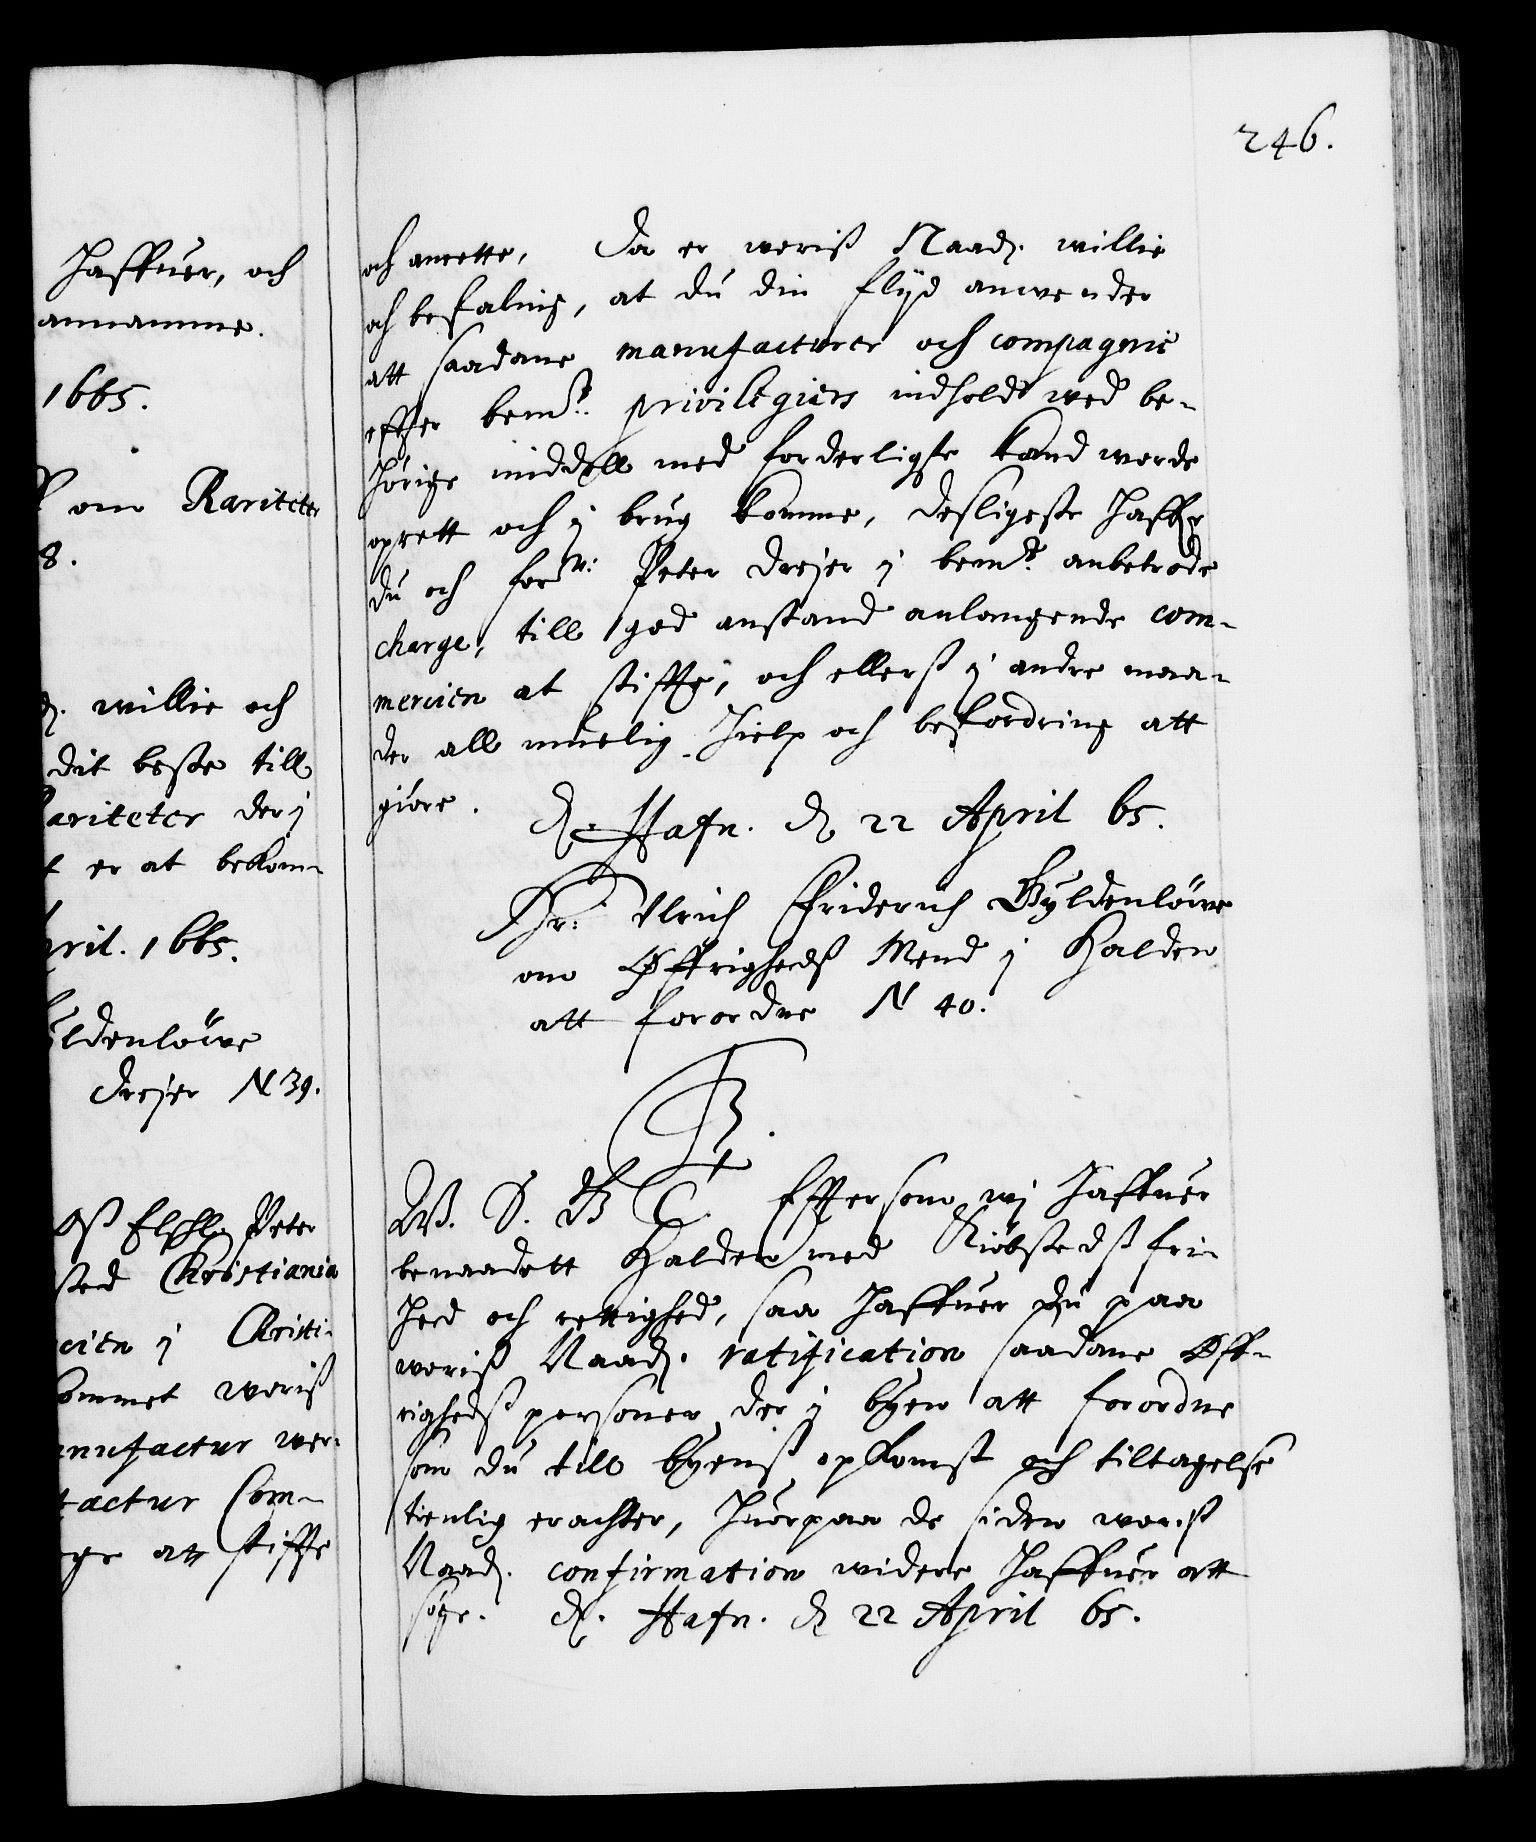 Haffuer, och
annamme.
1665.
om Rariteter
8.
willie och
dit beste till
ariteter der j
er at bekom-
pril. 1665.
yldenlöwe
Drejer N 39.
Oß Elskl. Peter
sted Christiania
cien j Christi-
kommet woriß
anufactur wer-
factur Com-
ge att stiffte
246.
och anrette, Da er woriß Naad. willie
och befaling, at du din flijd anwender
att saadane manufacturer och compagnie
effter bemte privilegiers indhold wed be-
hörige middell med forderligste kand worde
oprett och j brug komme, desligeste haffr
du och forn: Peter Drejer j bemte anbetrode
charge, till god anstand anlangende com-
mercien at stiffte, och ellerß j andre maa-
der all muelig hielp och befordring att
giöre.
Hafn. d 22 April 65.
Hr: Ulrich Friderich Gyldenlöwe
om Öffrighedß Mend j Halden
att forordne N 40.
W. S. G T. Efftersom wj haffuer
benaadett Halden med Kiöbstedß fri-
hed och rettighed, saa haffuer du paa
woriß Naad. ratification saadane Öff-
righedß personer der j byen att forordne
som du till byenß opkomst och tiltagelse
tienlig erachter, huorpaa de siden worist
Naad. confirmation widere haffuer att
söge. Hafn. d 22 April 65.